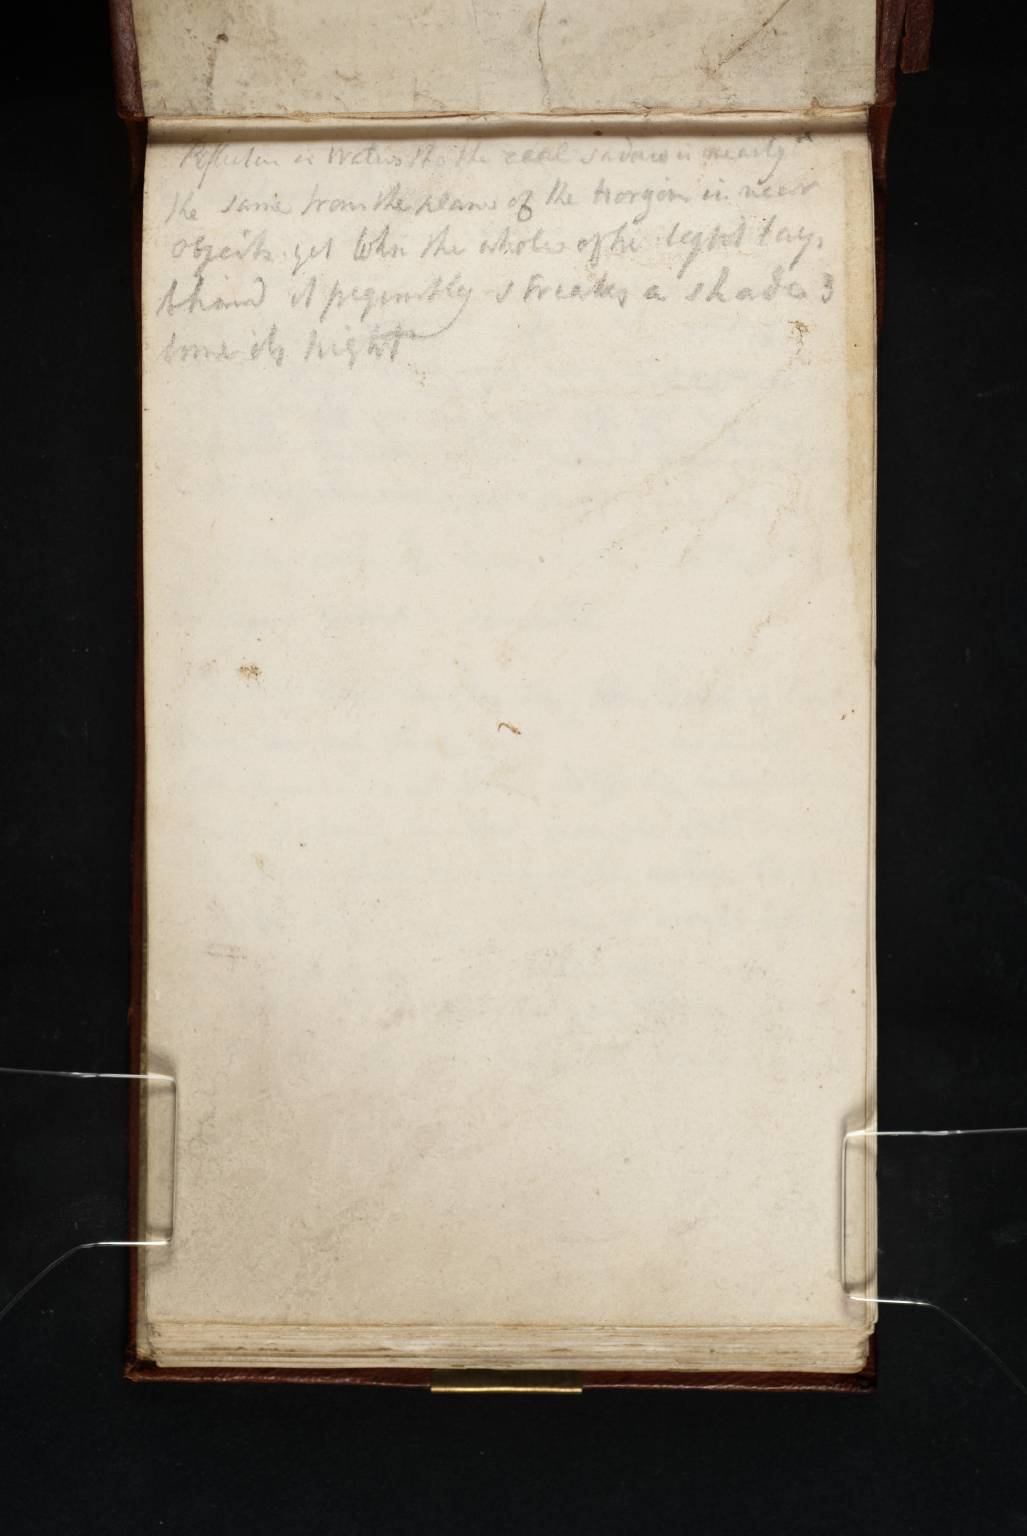 Reflection in Water tho the real sadow is nearly
the same from the plane of the horizon in near
objects yet when the whole of the light lays
behind it frequently streaks a shade 3
time its hight